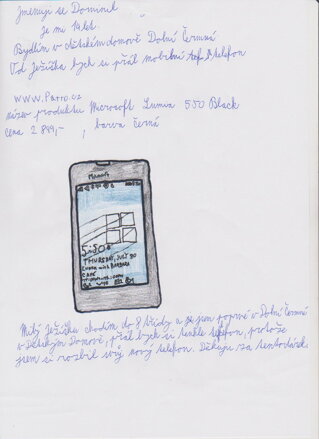 Jmenuji se Dominik
Je mi 14 let
Bydlím v dětském domově Dolní Čermná
Od Ježíška bych si přál mobilní telefon
WWW.Patro.cz
název produktu Microsoft Lumia 550 Black
cena 2 899,- , barva černá
Microsoft
5:50
THURSDAY, JULY 30
Lunch with Barbara
CAFÉ
Milý Ježíšku chodím do 8 třídy a jsem poprvé v Dolní Čermné
v Dětským Domově, přál bych si tenhle telefon, protože
jsem si rozbil svůj nový telefon. Děkuji za tento dárek.